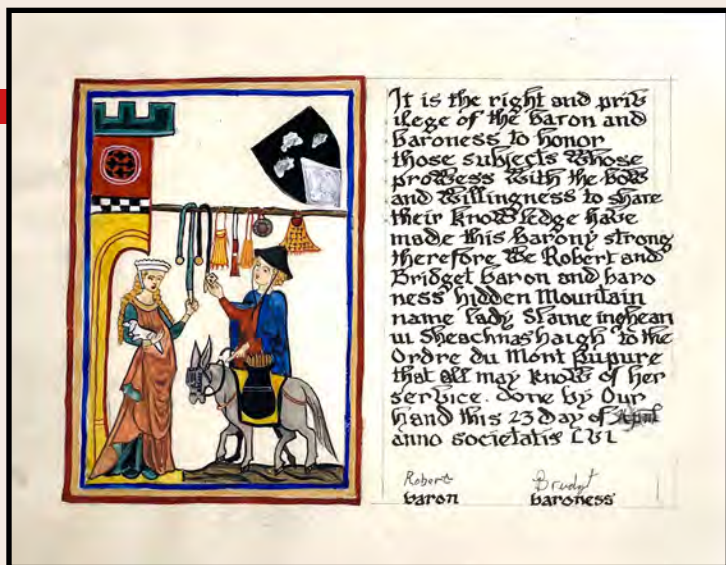 It is the right and priv
ilege of the baron and
baroness to honor
those subjects whose
prowess with the bow
and willingness to share
their knowledge have
made this barony strong
therefore we Robert and
Bridget baron and baro
ness hidden Mountain
name lady Slaine inghean
ui Sheachnashaigh to the
Ordre du Mont
that all may know of her
service. done by Our
hand this 23 day of
anno societatis LVI
Robert
baron
baroness